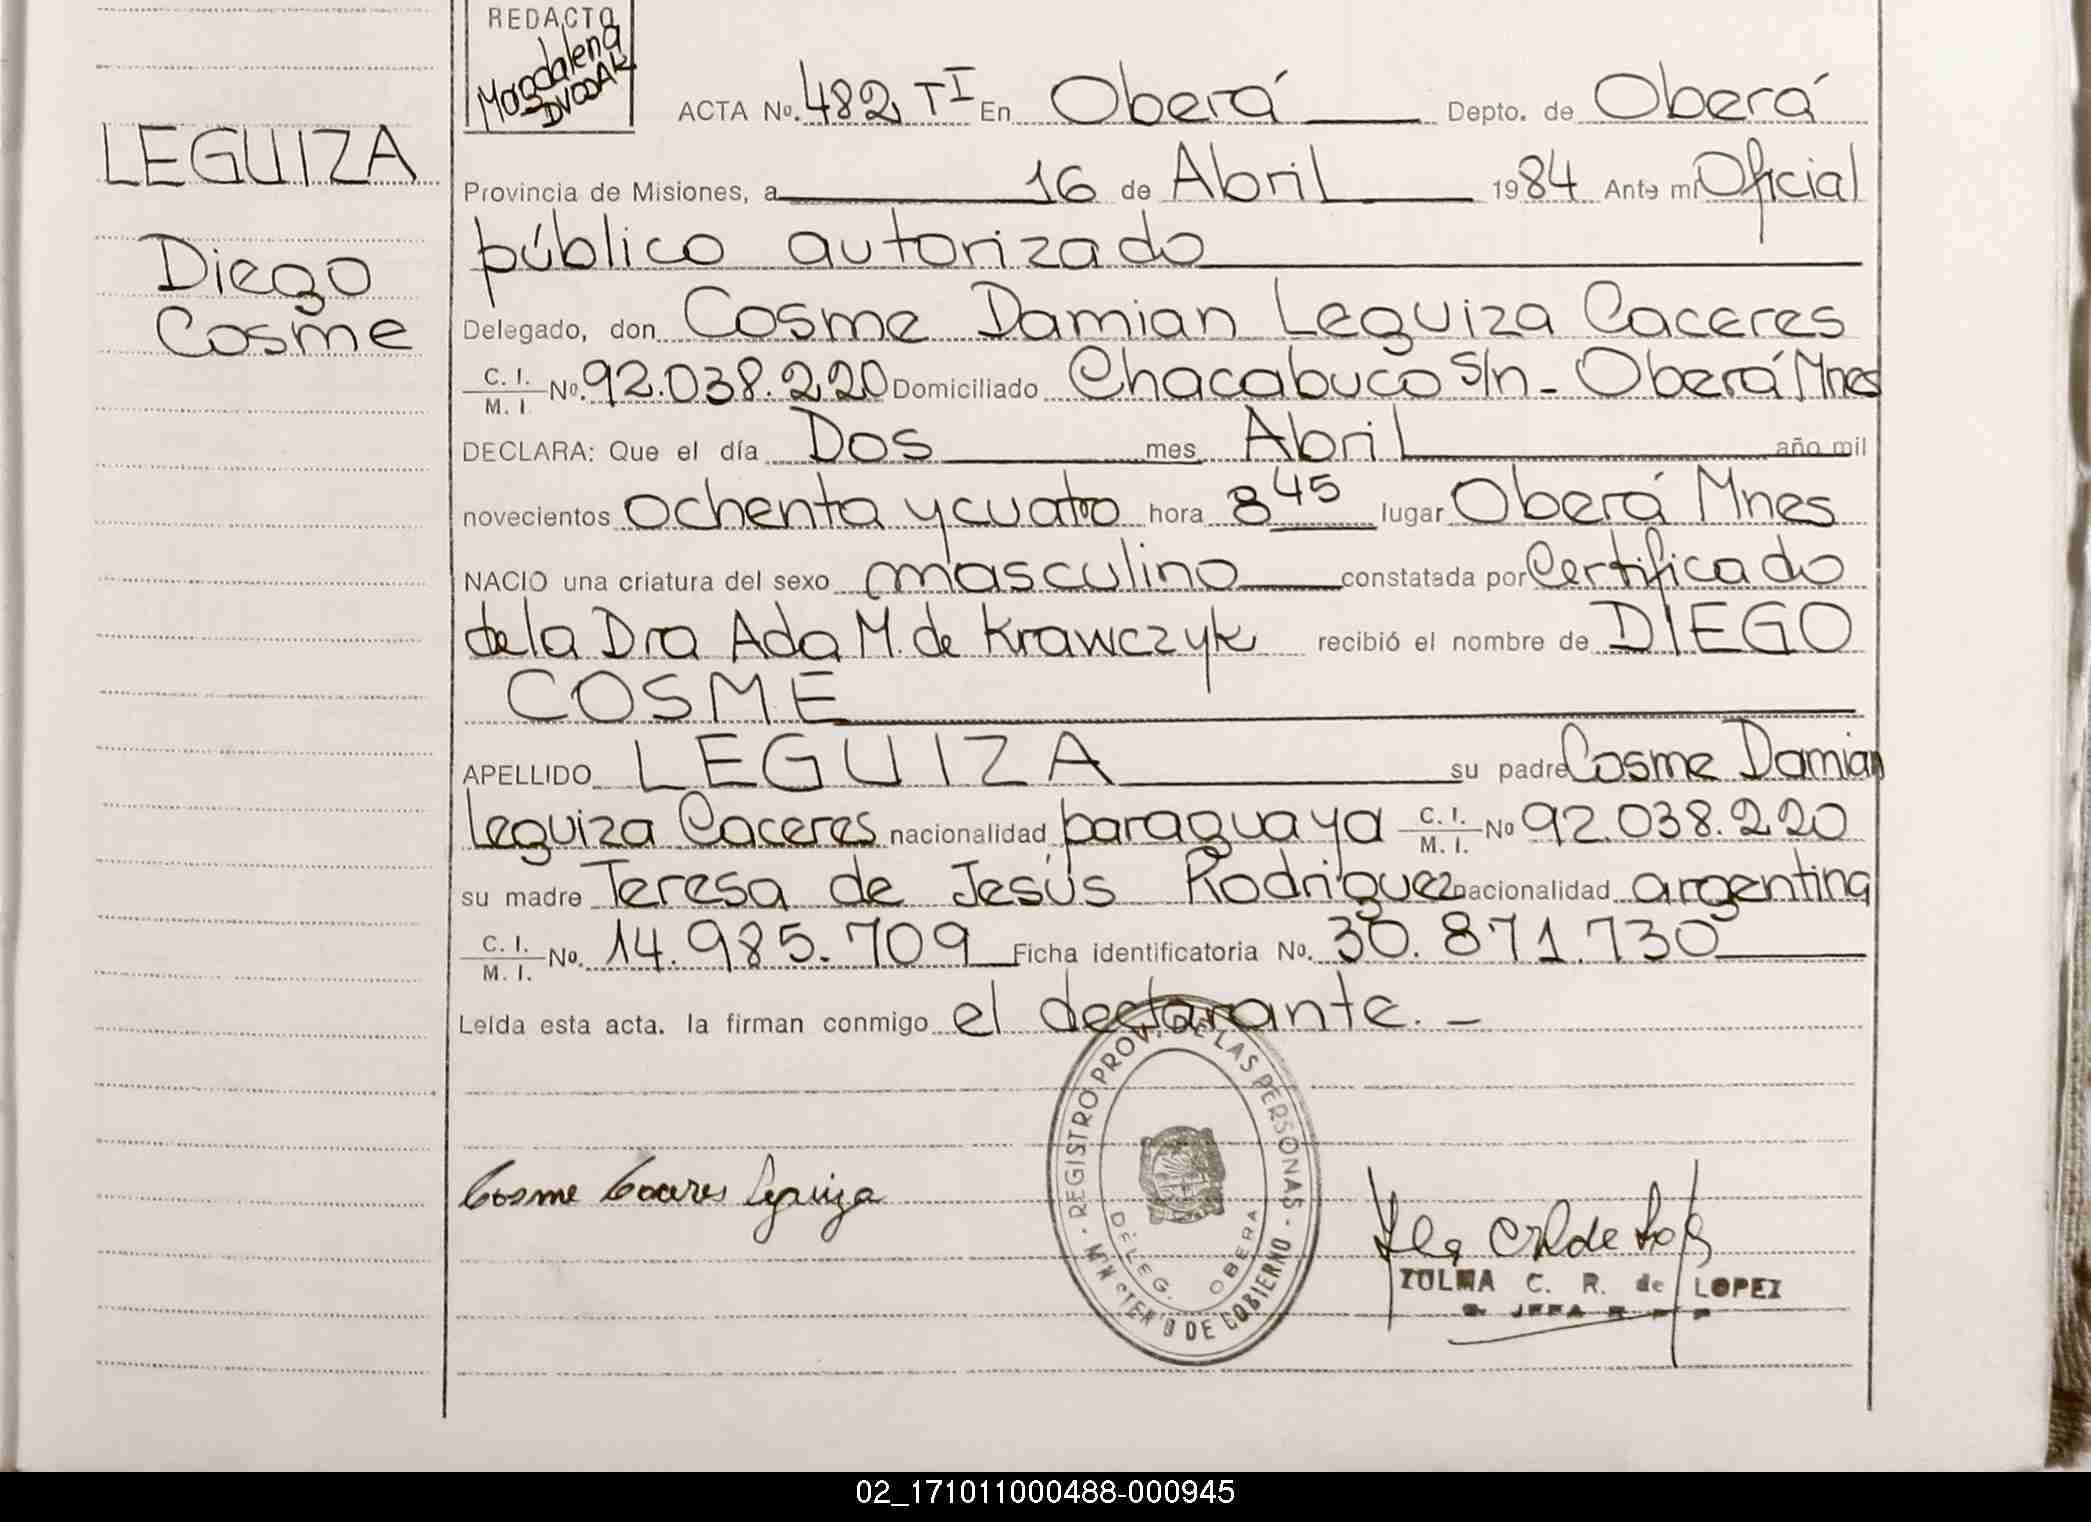 REDACTO
Magdalena
DVODAK
LEGUIZA
Diego
Cosme
ACTA No. 482 TI En Oberá Depto. de Oberá
Provincia de Misiones, a 16 de Abril 1984 Ante mí Oficial
público autorizado
Delegado, don Cosme Damian Leguiza Caceres
C. I. M. I. No. 92.038.220 Domiciliado Chacabuco S/n - Oberá Mnes
DECLARA: Que el día Dos mes Abril año mil
novecientos ochenta y cuatro hora 8 45 lugar Oberá Mnes
NACIO una criatura del sexo masculino constatada por Certificado
de la Dra Ada M. de Krawczyk recibió el nombre de DIEGO
COSME
APELLIDO LEGUIZA su padre Cosme Damian
Leguiza Caceres nacionalidad paraguaya C. I. M. I. No 92.038.220
su madre Teresa de Jesús Rodriguez nacionalidad argentina
C. I. M. I. No. 14.985.709 Ficha identificatoria No. 30.871.730
Leída esta acta. la firman conmigo el declarante. -
REGISTRO PROV. DE LAS PERSONAS - MINISTERIO DE GOBIERNO -
DELEG. OBERA
Cosme Caceres Leguiza
ZULMA C. R. de LOPEZ
JEFA
02_171011000488-000945